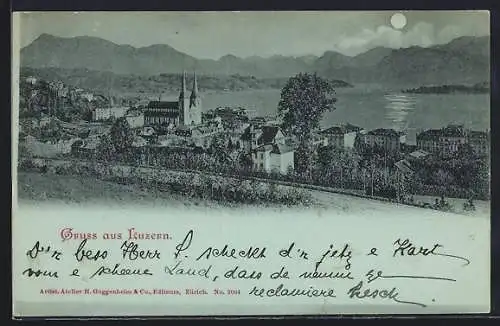 Gruss aus Luzern.
D'r bess Herr S. scheckt d'r jetz e Kart
vom e scheene Land, dass de numme ge
Artist. Atelier H. Guggenheim & Co., Editeurs, Zürich. No. 2064
reclamiere hesch.